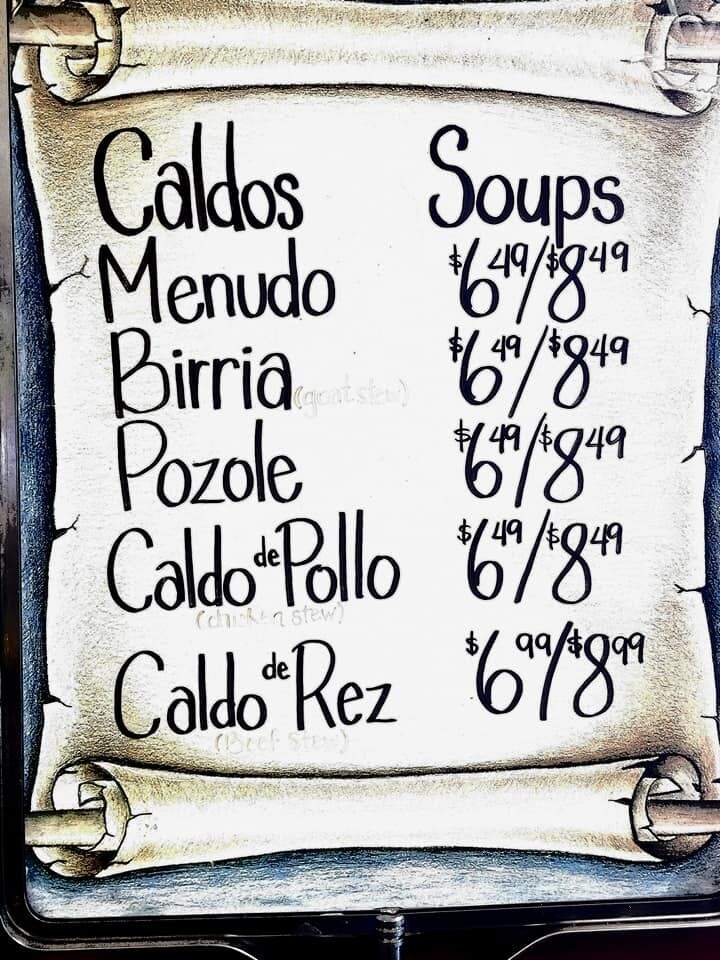 Caldos Soups
Menudo $6.49/$8.49
Birria (goat stew) $6.49/$8.49
Pozole $6.49/$8.49
Caldo de Pollo $6.49/$8.49
(chicken stew)
Caldo de Rez $6.99/$8.99
(Beef Stew)